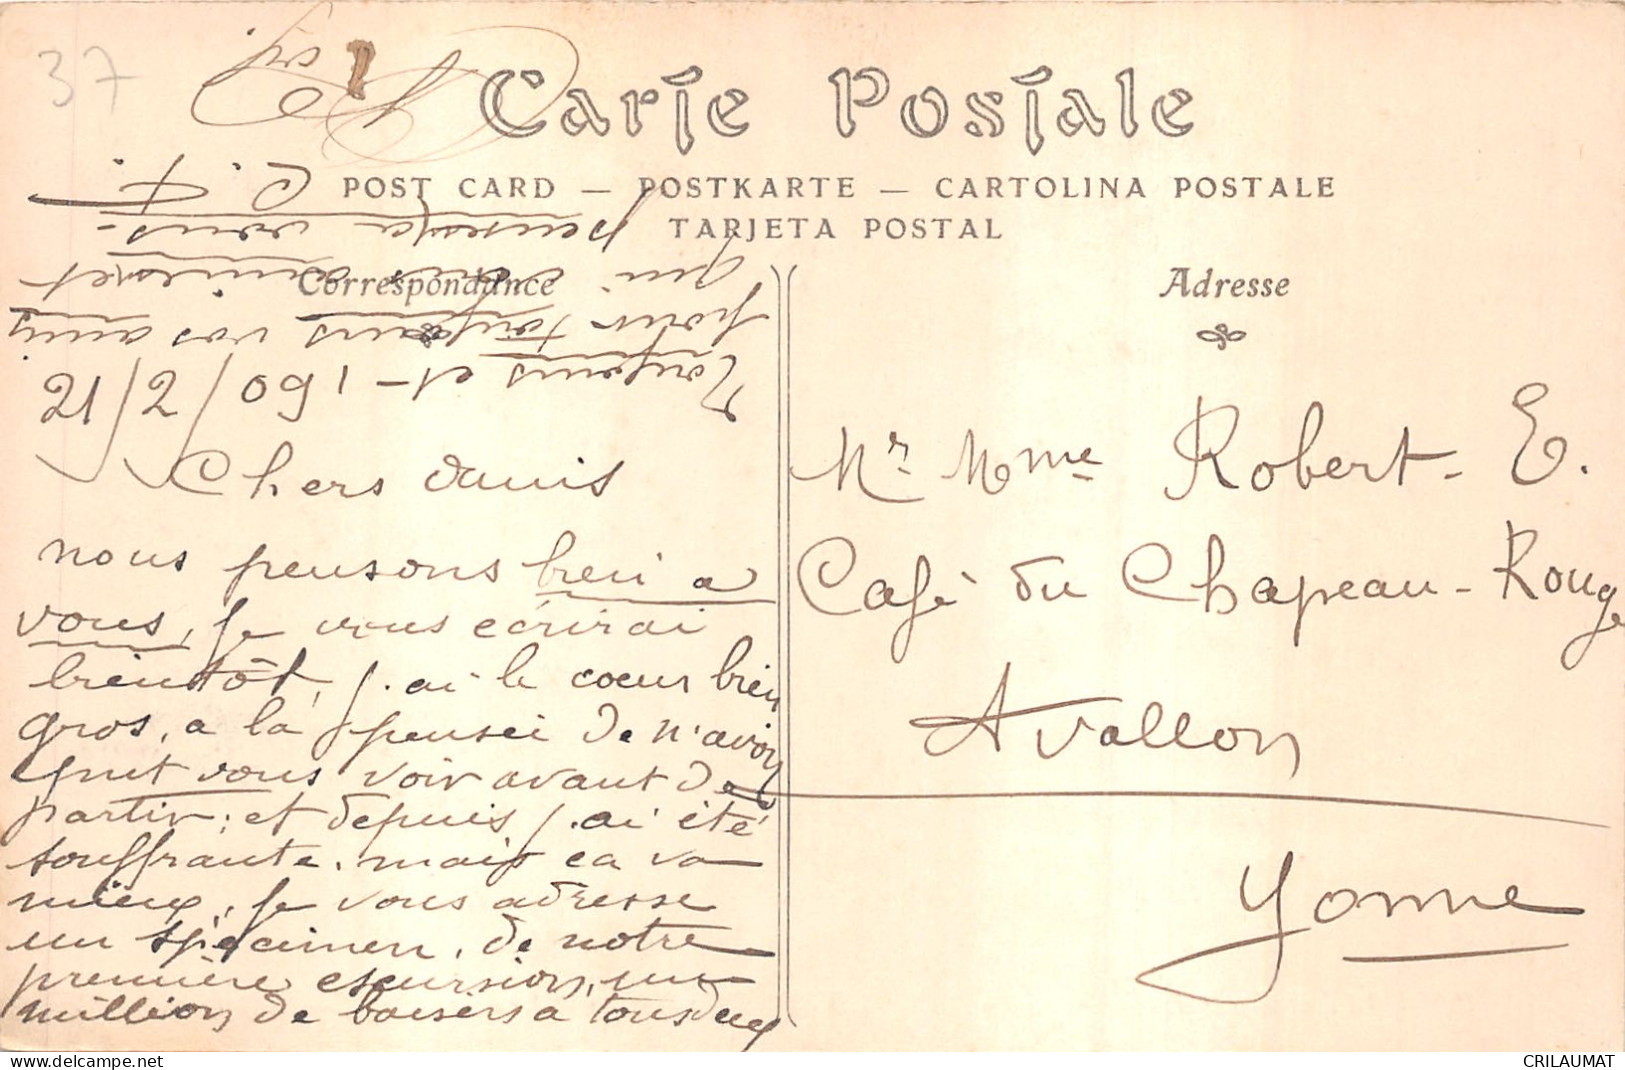 37
Carte Postale
POST CARD — POSTKARTE — CARTOLINA POSTALE
TARJETA POSTAL
Correspondance
Adresse
21/2/09
Chers amis
nous pensons bien a
vous, je vous écrirai
bientôt, j.ai le coeur bien
gros, a la pensée de n'avoir
put vous voir avant de
partir; et depuis j.ai été
souffrante. mais ca va
mieux, je vous adresse
un spécimen, de notre
première escursion, un
million de baisers a tous deux
Toujours et
pour toujours vos amis
qui vous aiment
pense a vous.
C. F.
Mr Mme Robert. E.
Café du Chapeau-Rouge
Avallon
Yonne
delcampe.net
CRILAUMAT